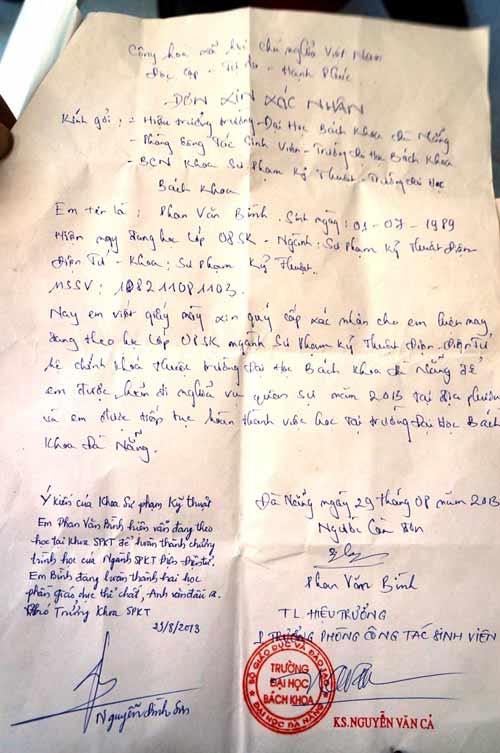 Cộng hòa xã hội chủ nghĩa Việt Nam
Độc lập - Tự do - Hạnh Phúc
ĐƠN XIN XÁC NHẬN
Kính gởi : - Hiệu trưởng trường Đại Học Bách Khoa Đà Nẵng
- Phòng Công Tác Sinh Viên - Trường Đại Học Bách Khoa
- BCN Khoa Sư Phạm Kỹ Thuật - Trường Đại Học
Bách Khoa
Em tên là : Phan Văn Bính. Sinh ngày : 01-07-1989
Hiện nay đang học lớp 08SK - Ngành : Sư Phạm Kỹ Thuật Điện
Điện Tử - Khoa : Sư Phạm Kỹ Thuật.
MSSV : 108211081103.
Nay em viết giấy này xin quý cấp xác nhận cho em hiện nay
đang theo học lớp 08SK ngành Sư Phạm Kỹ Thuật Điện - Điện Tử
hệ chính khoá thuộc trường Đại Học Bách Khoa Đà Nẵng để
em được hoãn đi nghĩa vụ quân sự năm 2013 tại địa phương
và em được tiếp tục hoàn thành việc học tại trường Đại Học Bách
Khoa Đà Nẵng.
Đà Nẵng ngày 29 tháng 08 năm 2013
Người Làm Đơn
Phan Văn Bính
Ý kiến của Khoa Sư phạm Kỹ thuật
Em Phan Văn Bính hiện vẫn đang theo
học tại Khoa SPKT để hoàn thành chương
trình học của Ngành SPKT Điện - Điện tử.
Em Bính đang hoàn thành hai học
phần giáo dục thể chất, Anh văn đầu ra.
Phó Trưởng Khoa SPKT
29/8/2013
Nguyễn Đình Sơn
TL HIỆU TRƯỞNG
P TRƯỞNG PHÒNG CÔNG TÁC SINH VIÊN
BỘ GIÁO DỤC VÀ ĐÀO TẠO
TRƯỜNG
ĐẠI HỌC
BÁCH KHOA
ĐẠI HỌC ĐÀ NẴNG
KS.NGUYỄN VĂN CẢ